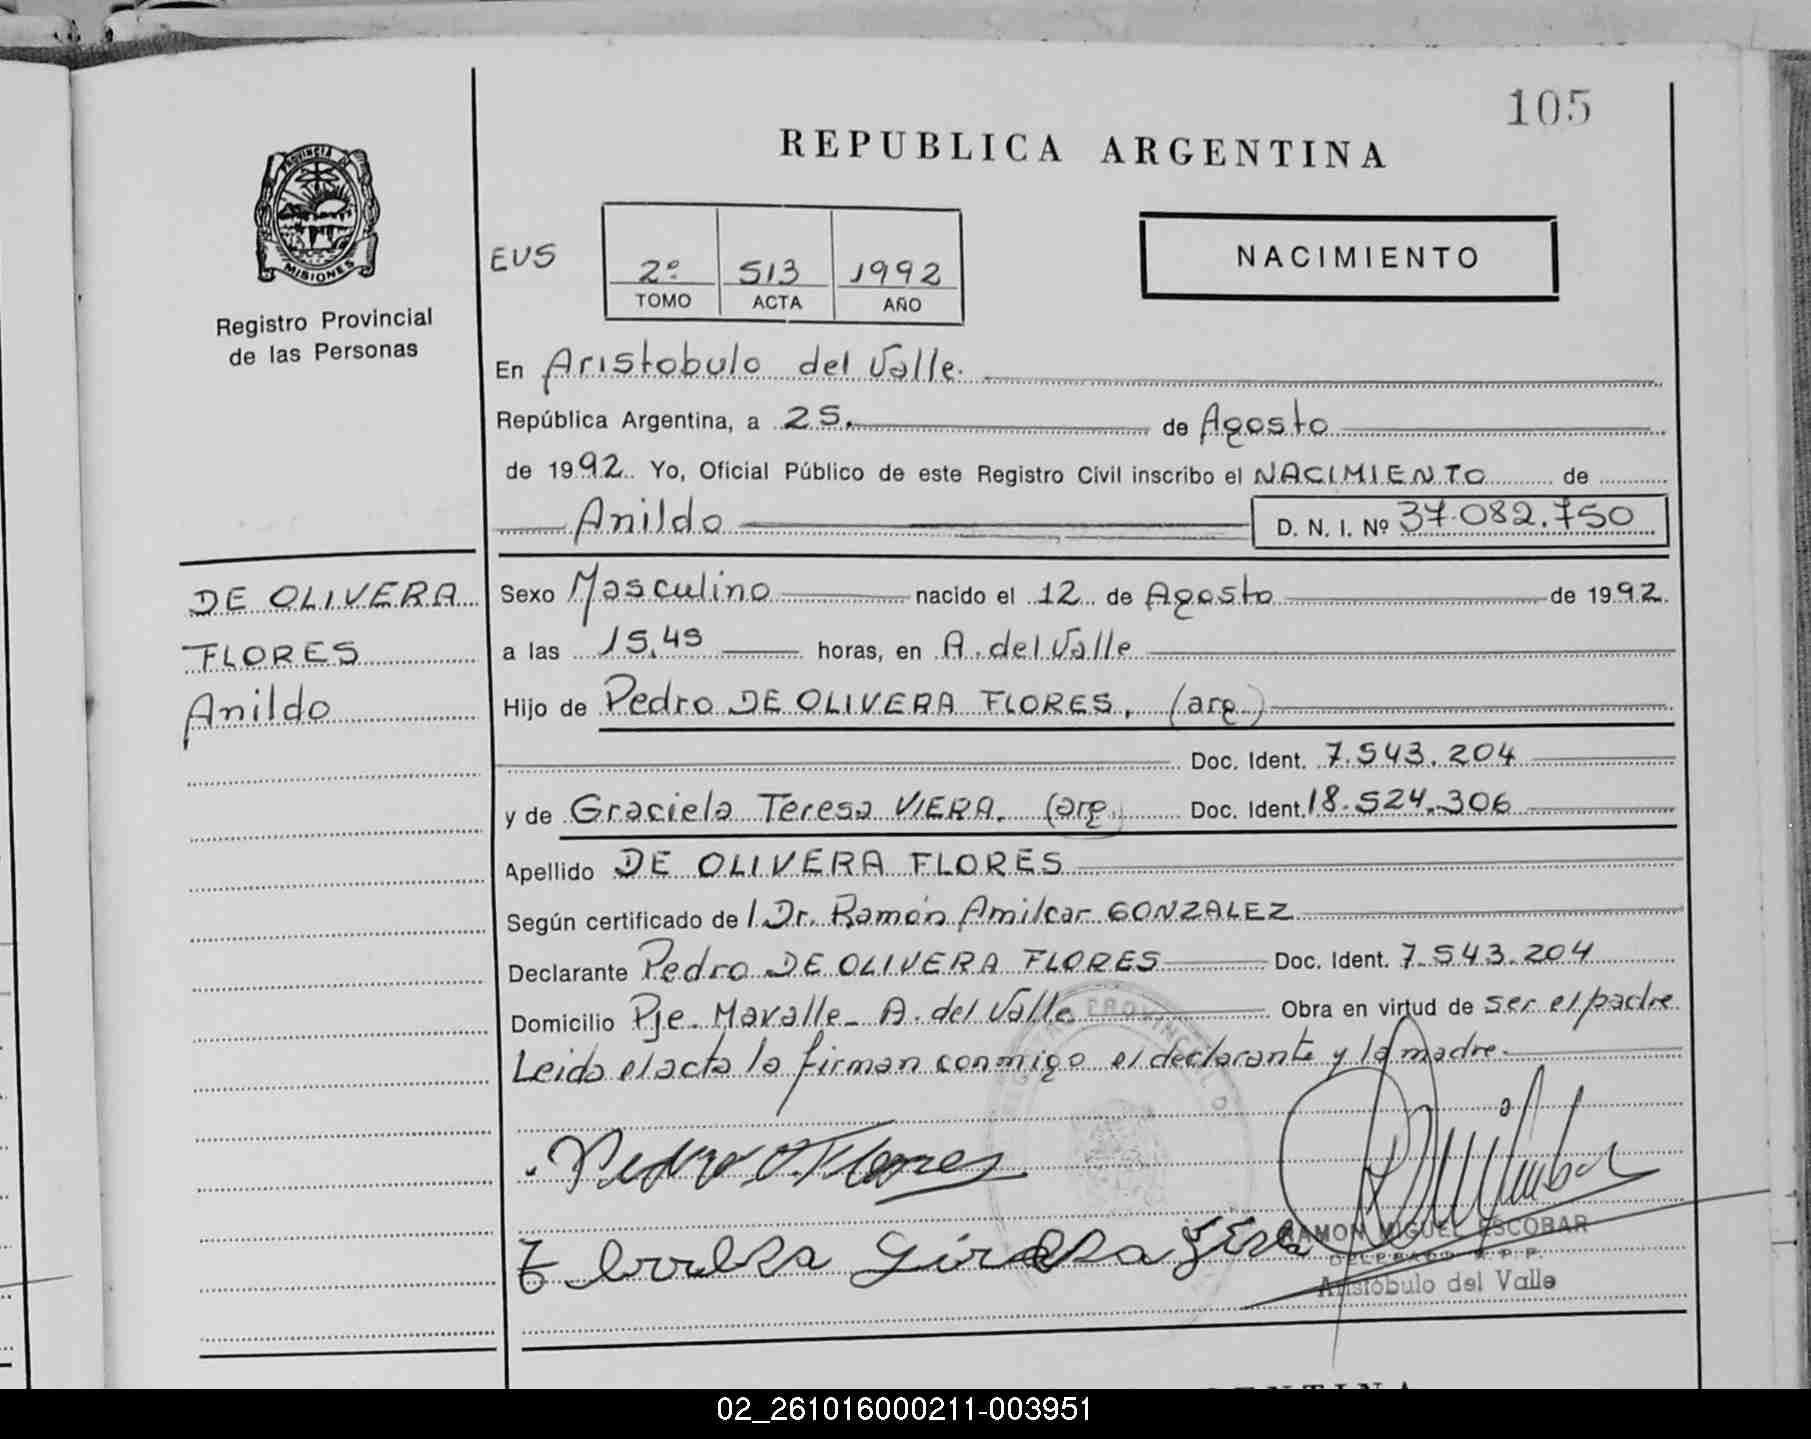 105
REPUBLICA ARGENTINA
PROVINCIA DE
MISIONES
Registro Provincial
de las Personas
EUS
2º 513 1992
TOMO ACTA AÑO
NACIMIENTO
En Aristobulo del Valle.
República Argentina, a 25. de Agosto
de 1992. Yo, Oficial Público de este Registro Civil inscribo el NACIMIENTO de
Anildo D. N. I. Nº 37.082.750
DE OLIVERA
FLORES
Anildo
Sexo Masculino nacido el 12 de Agosto de 1992.
a las 15,45 horas, en A. del Valle
Hijo de Pedro DE OLIVERA FLORES, (arg.)
Doc. Ident. 7.543.204
y de Graciela Teresa VIERA. (arg.) Doc. Ident. 18.524.306
Apellido DE OLIVERA FLORES
Según certificado de l Dr. Ramón Amilcar GONZALEZ
Declarante Pedro DE OLIVERA FLORES Doc. Ident. 7.543.204
Domicilio Pje. Mavalle - A. del Valle Obra en virtud de ser el padre
Leida el acta la firman conmigo el declarante y la madre.
Pedro O. Flores
RAMON MIGUEL ESCOBAR
DELEGADO R.P.P.
Aristóbulo del Valle
02_261016000211-003951